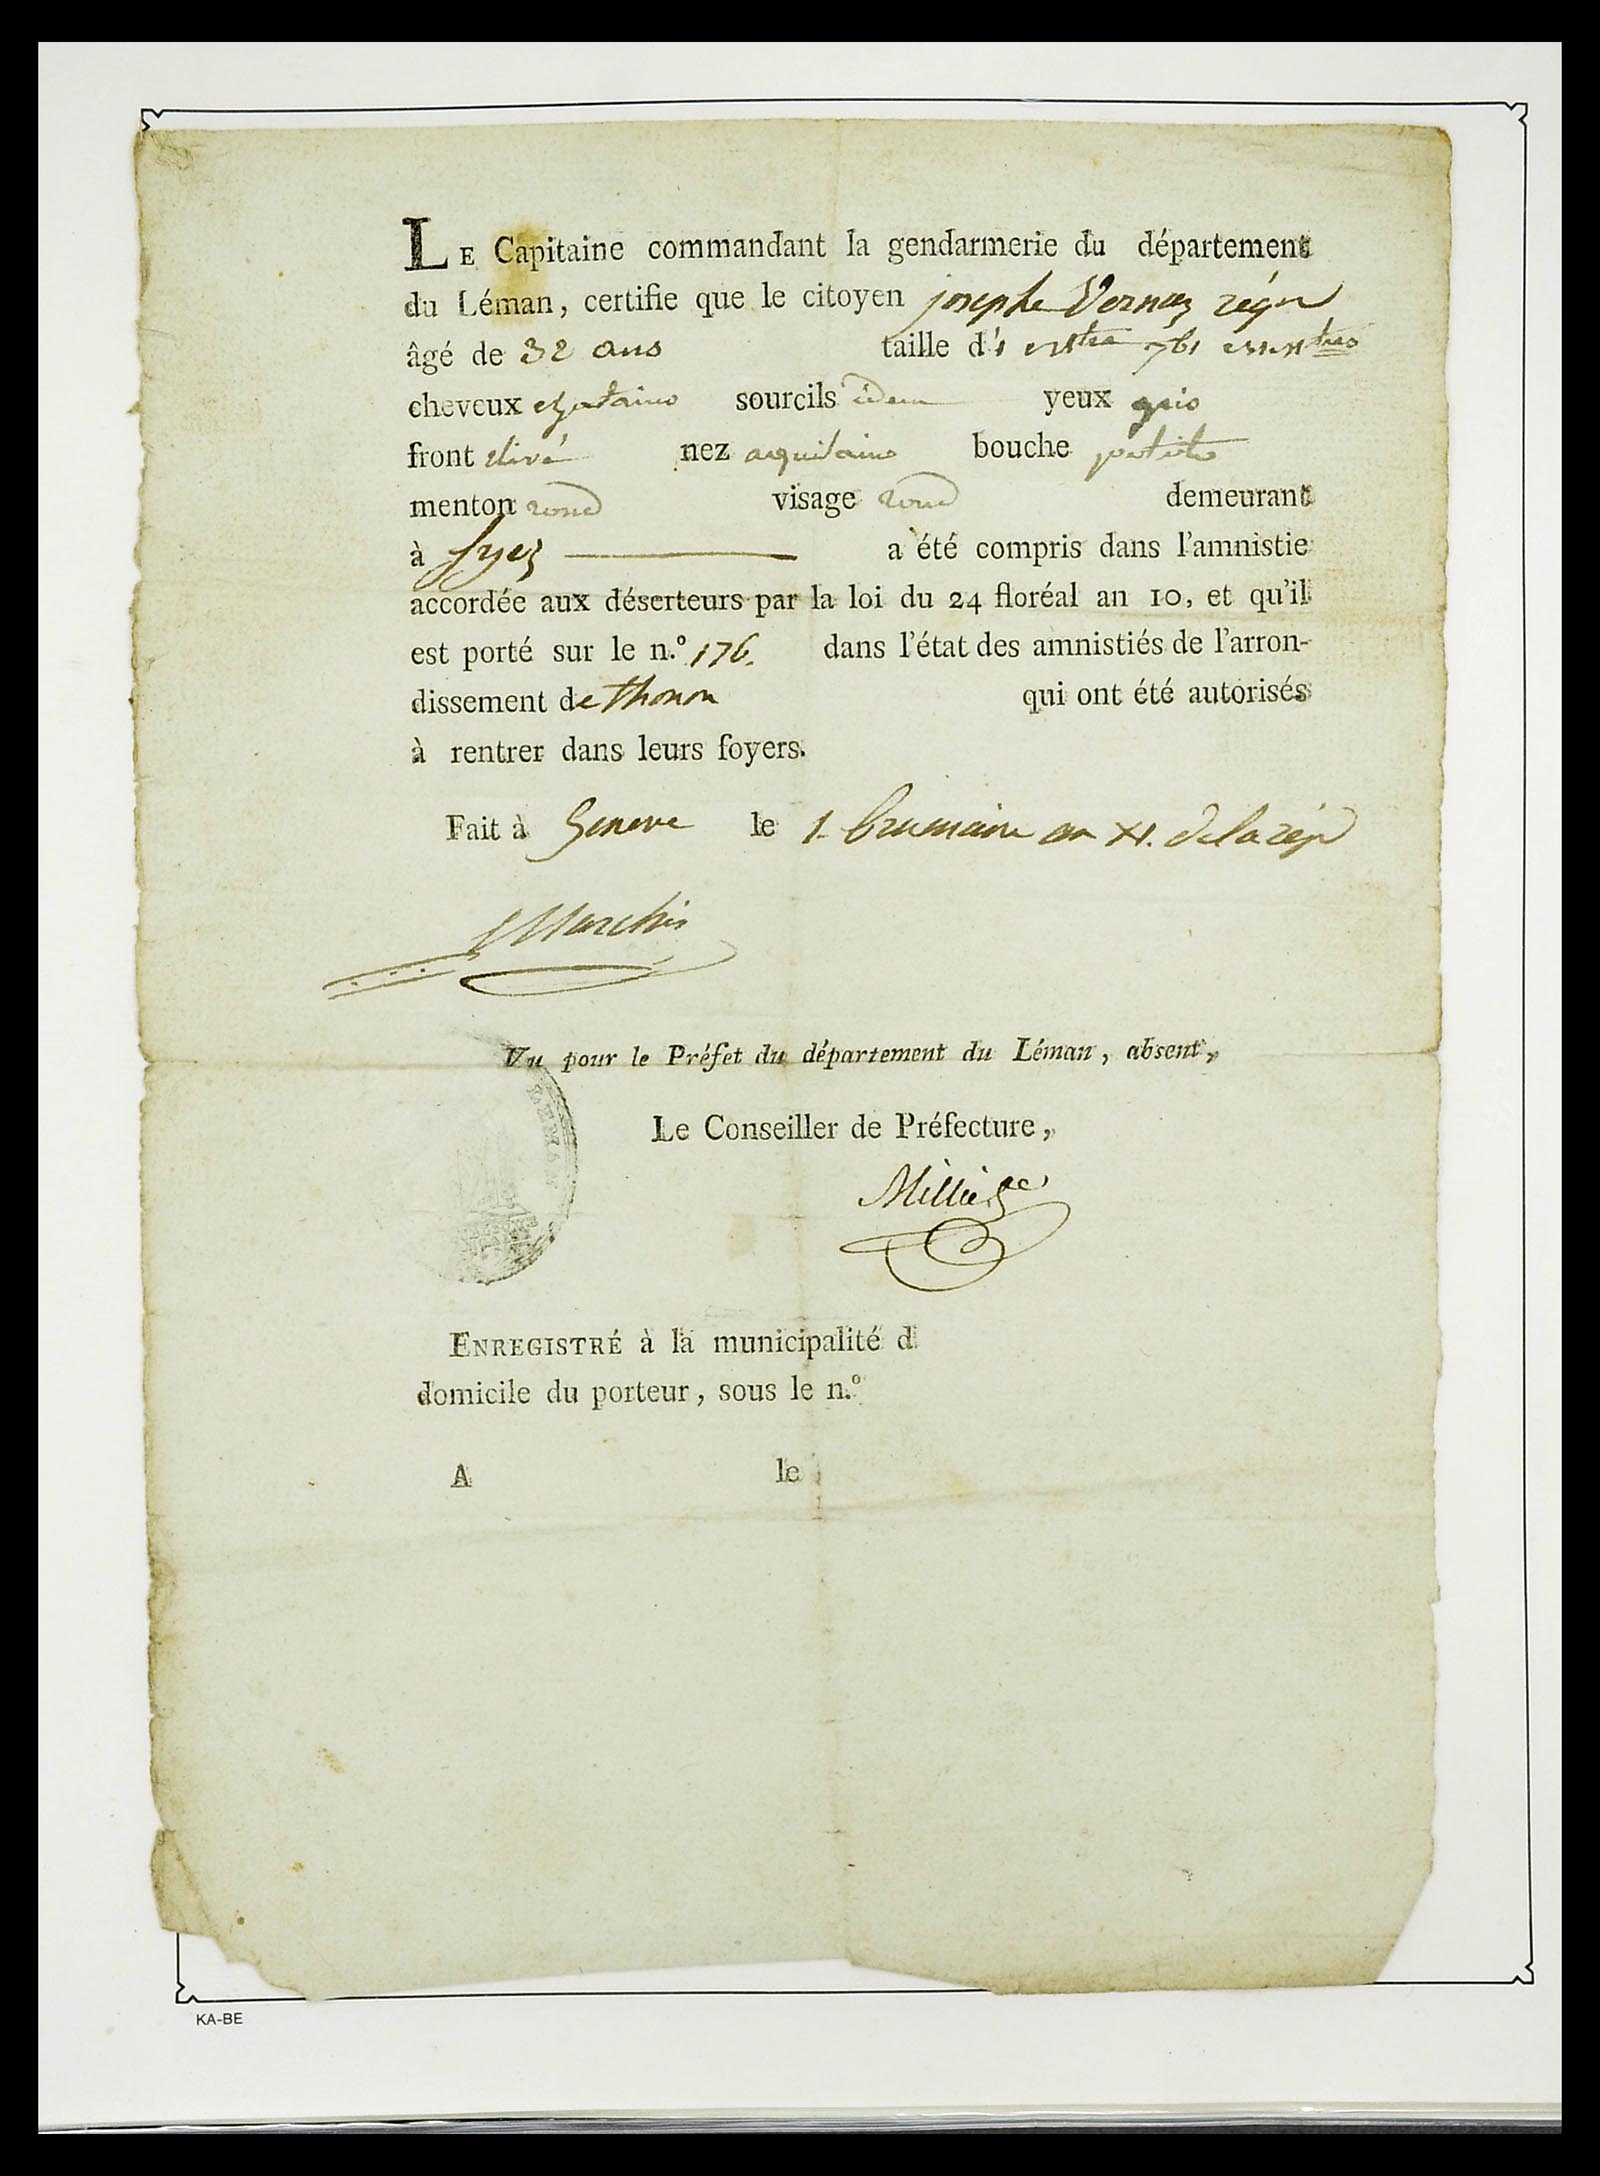 LE Capitaine commandant la gendarmerie du département
du Léman, certifie que le citoyen josephe Vernaz
âgé de 32 ans taille d'1 761
cheveux chatains sourcils idem yeux gris
front elivé nez aquilains bouche petite
menton rond visage rond demeurant
à a été compris dans l'amnistie
accordée aux déserteurs par la loi du 24 floréal an 10, et qu'il
est porté sur le n.º 176. dans l'état des amnistiés de l'arron-
dissement de thonon qui ont été autorisés
à rentrer dans leurs foyers.
Fait à Geneve le 1. brumaire an XI. de la rép
Vu pour le Préfet du département du Léman, absent,
LEMAN
Le Conseiller de Préfecture,
ENREGISTRÉ à la municipalité d
domicile du porteur, sous le n.º
A le
KA-BE